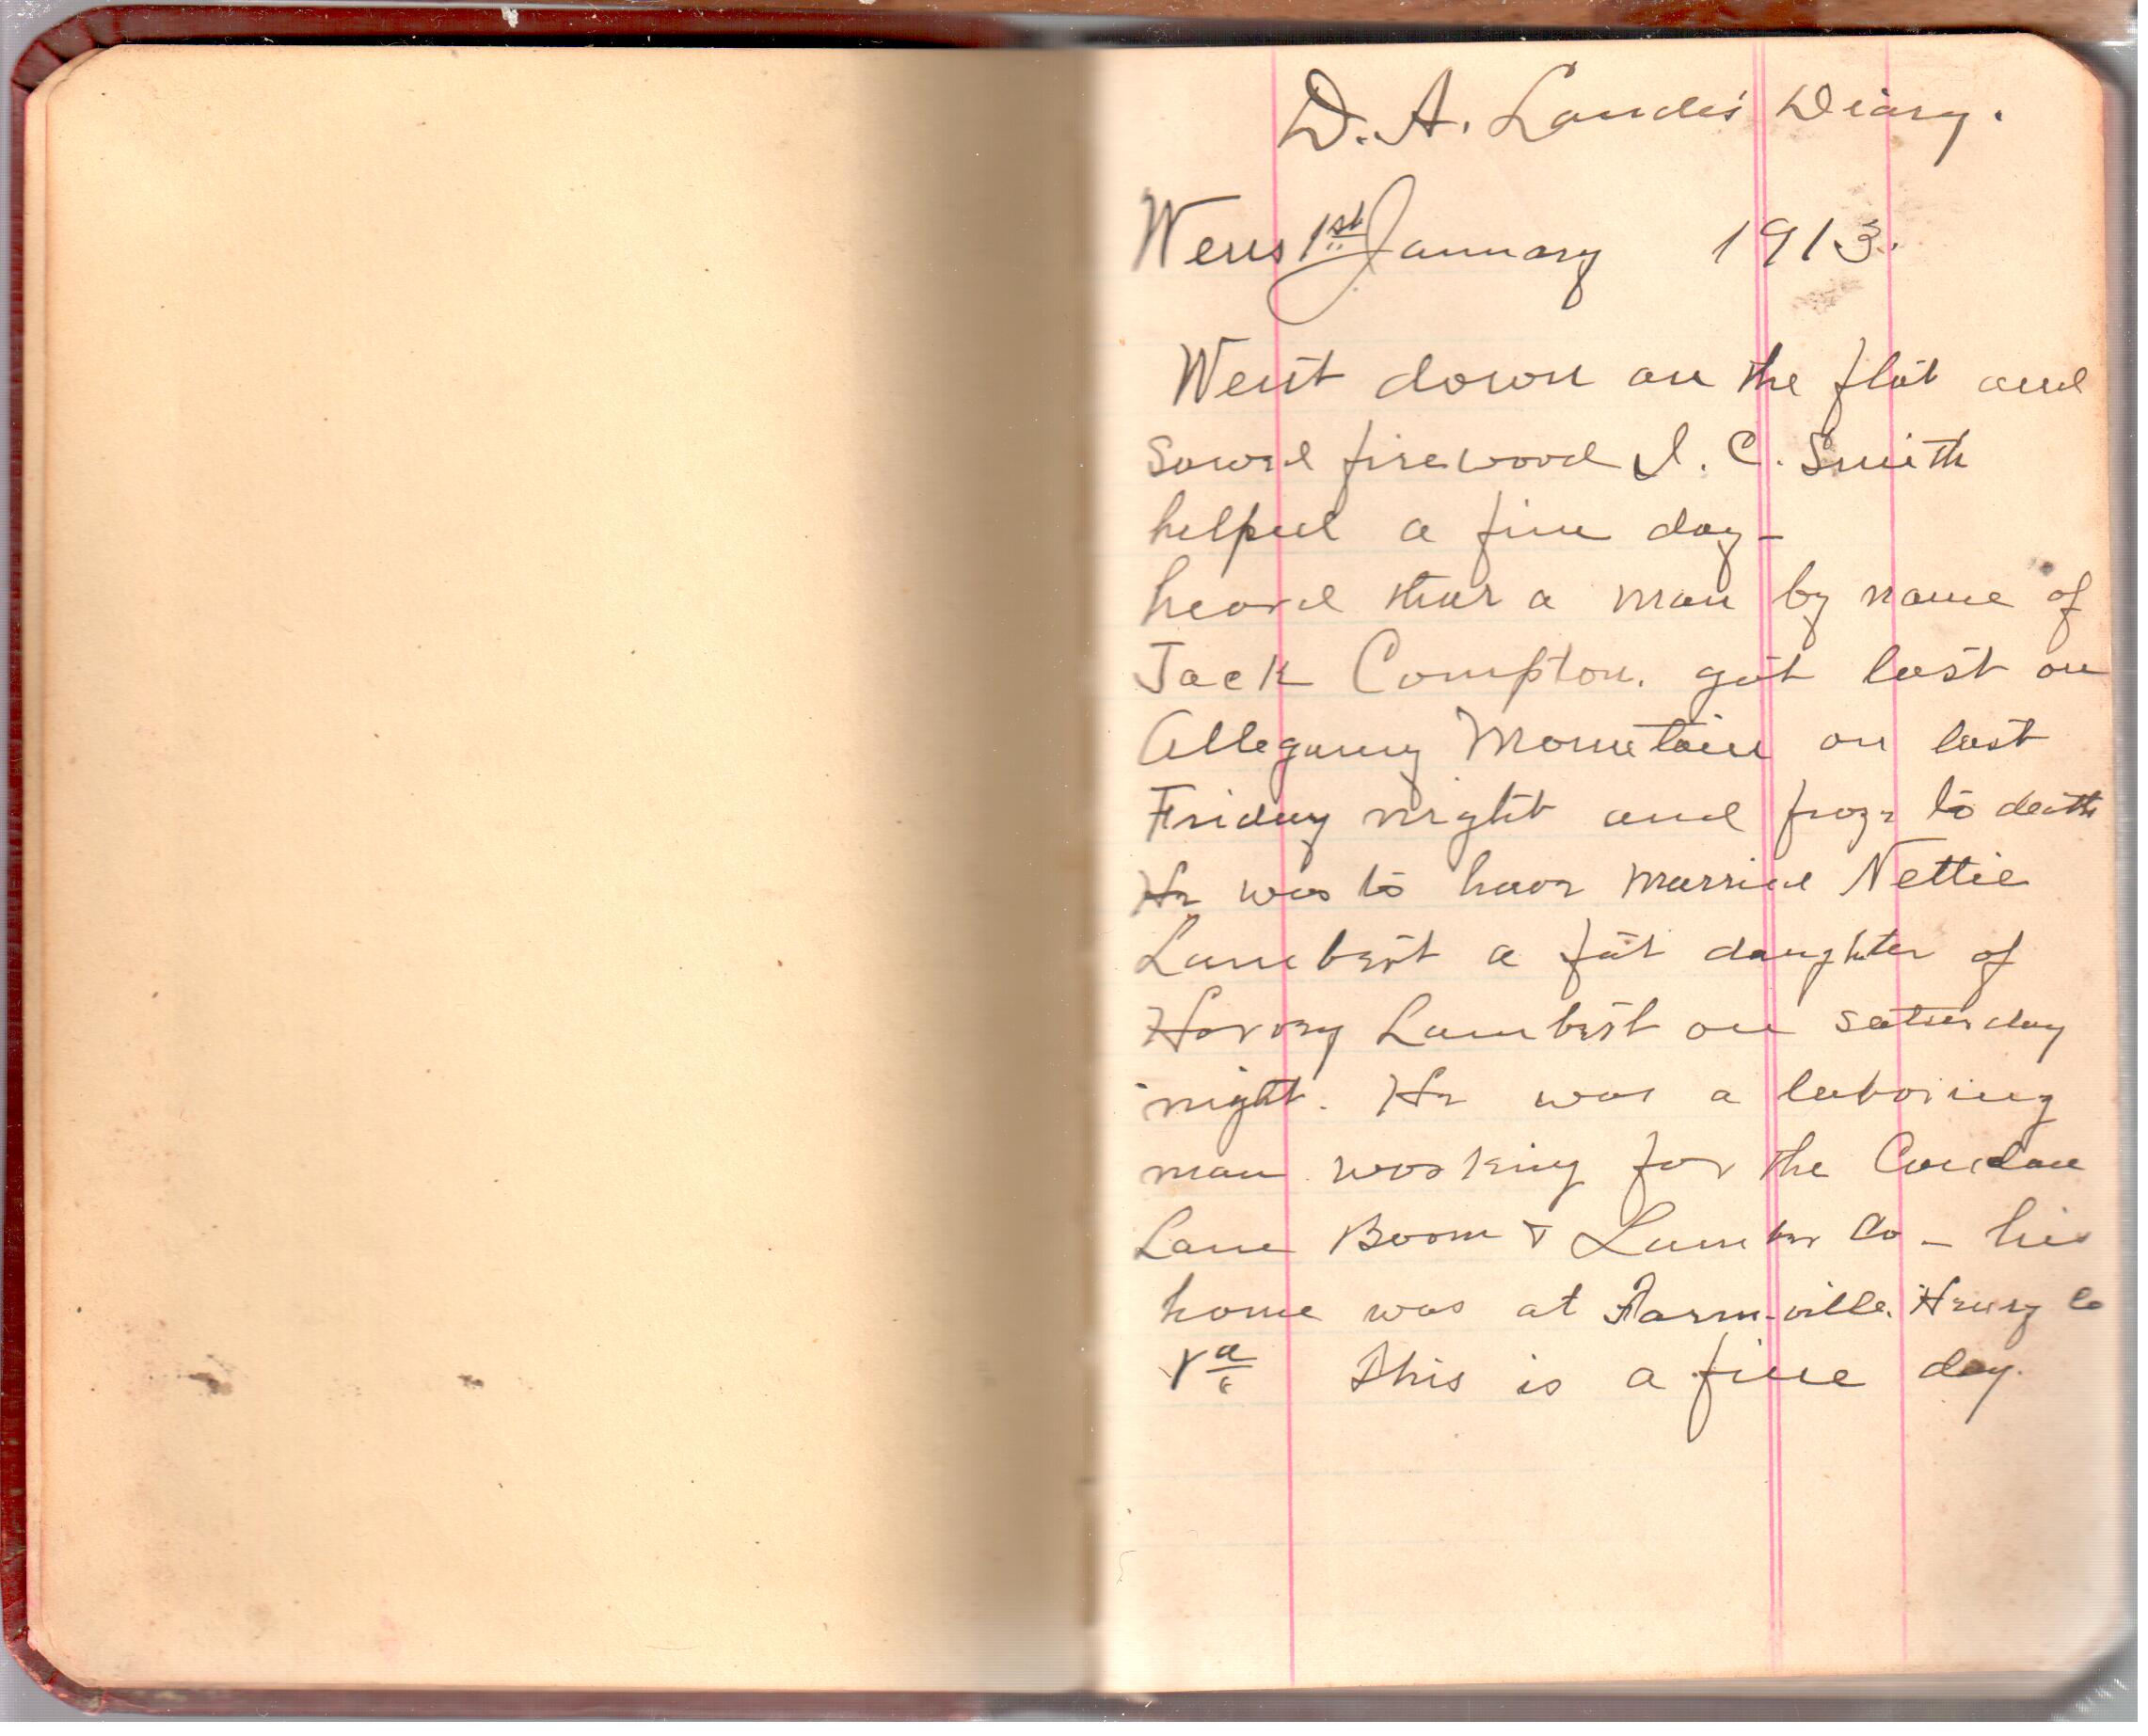 D. A. Landes Diary.
Wens 1st January 1913.
Went down on the flat and
Sawed firewood J. C. Smith
helped a fine day –
heard that a man by name of
Jack Compton. got lost on
Allegany Mountain on last
Friday night and froze to death
He was to have married Nettie
Lambert a fat daughter of
Harvey Lambert on saturday
night. He was a laboring
man working for the Condon
Lane Boom & Lumber Co – his
home was at Farm-ville. Henry Co
Va This is a fine day.